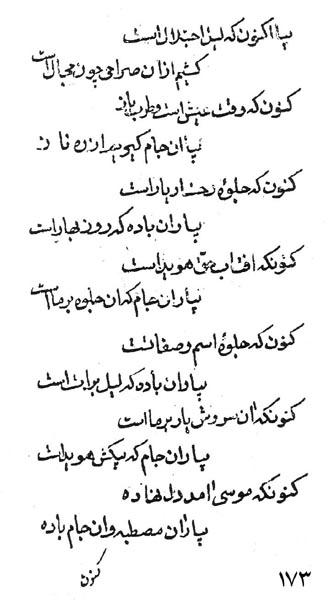 بیا اکنون که لیل اجلال است
کشیم ازان صراحی چون مجال است
کنون که وقت عیش است و طرب باز
بیا ان جام گیریم از ره ناز
کنون که جلوهٔ رخسار یار است
بیار ان باده که روز بهار است
کنونکه افتاب حق هویداست
بیار ان جام که ان جلوه بر ماست
کنون که جلوهٔ اسم و صفاتست
بیاران باده که لیل برات است
کنونکه ان سروش یار بر ما است
بیاران جام که هویداست
کنونکه موسی امد دل نهاده
بیاران مصطبه وان جام باده
کنون
۱۷۳